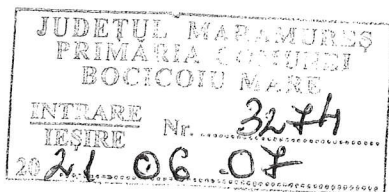 JUDEȚUL MARAMUREȘ
PRIMĂRIA COMUNEI
BOCICOIU MARE
INTRARE
IEȘIRE Nr. 3274
2021 06 07